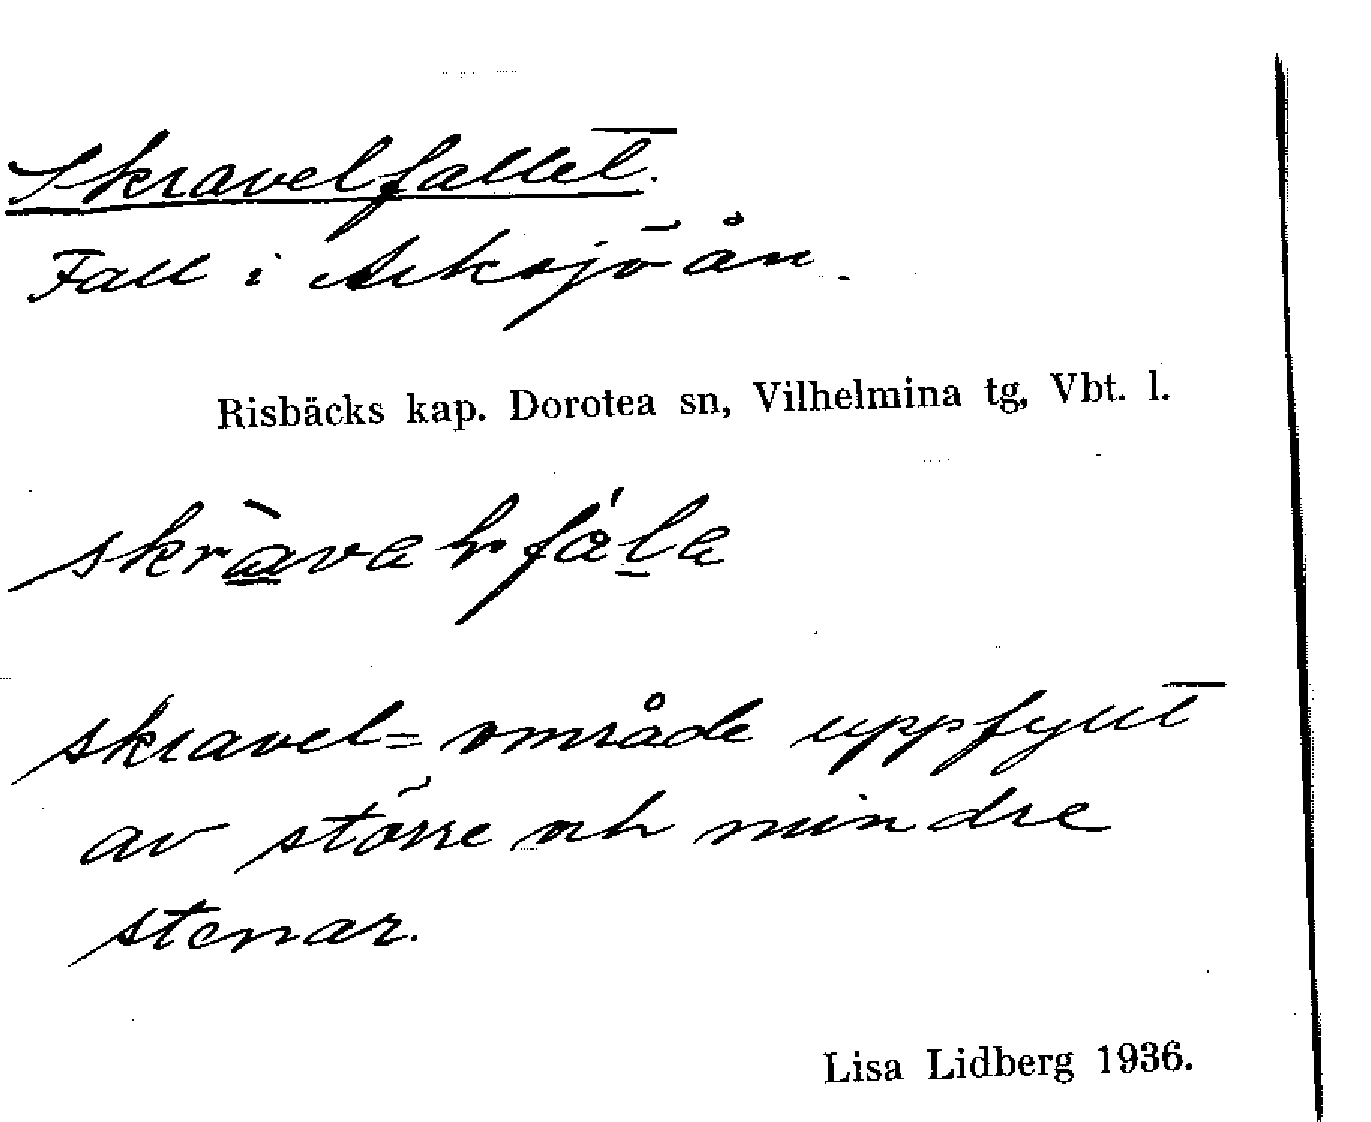 Skravelfallet.
Fall i Arksjöån.
Risbäcks kap. Dorotea sn, Vilhelmina tg, Vbt. l.
skravel= område uppfyllt
av större och mindre
stenar.
Lisa Lidberg 1936.